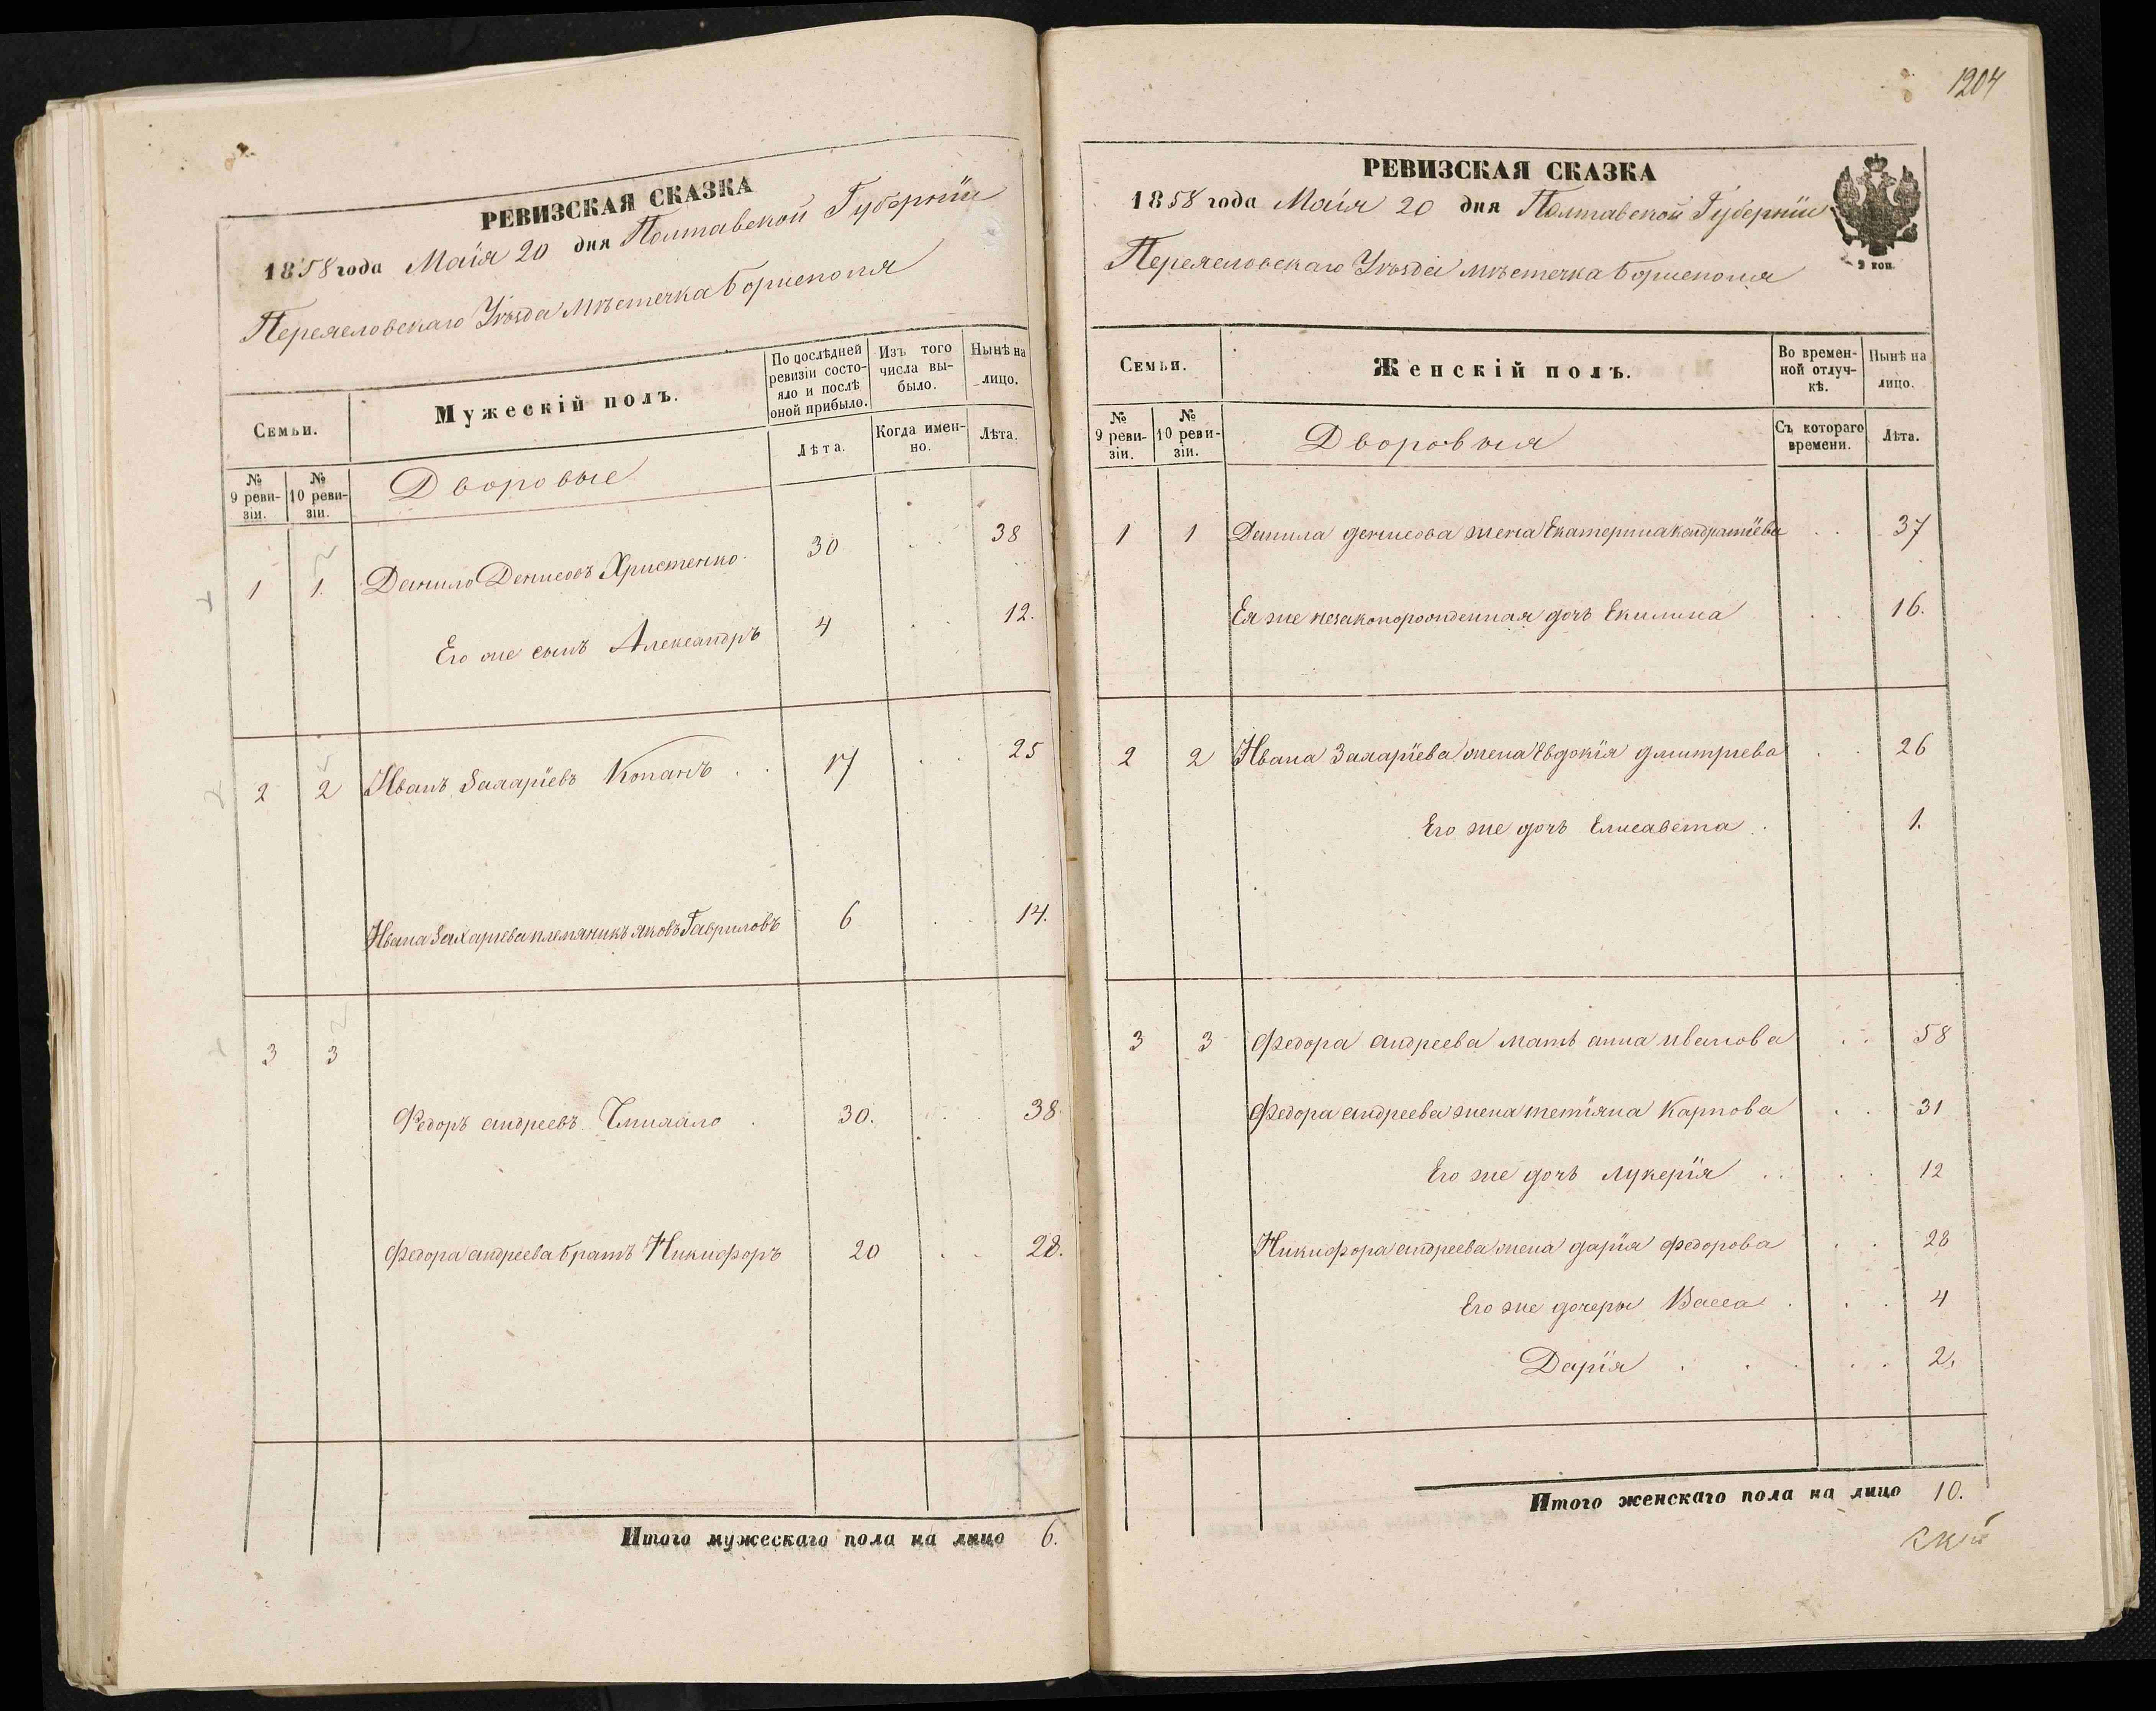 РЕВИЗСКАЯ СКАЗКА
1858 года Маія 20 дня Полтавской Губерніи
Переяславскаго Уѣзда мѣстечка Борисполя
Семьи.
Мужескій полъ.
По послѣдней ревизіи состояло и послѣ оной прибыло.
Изъ того числа выбыло.
Нынѣ на лицо.
№ 9 ревизіи.
№ 10 ревизіи.
Дворовые
Лѣта.
Когда именно.
Лѣта.
1 1. Данило Денисовъ Христенко 30 38
Его же сынъ Александръ 4 12.
2 2 Иванъ Захаріевъ Копанъ 17 25
Ивана Захариева племяникъ Яковъ Гавриловъ 6 14.
3 3
Федоръ андреевъ 30. 38
Федора андреева братъ Никифоръ 20 28.
Итого мужескаго пола на лицо 6.
1204
РЕВИЗСКАЯ СКАЗКА
1858 года Маія 20 дня Полтавской Губерніи
Переясловскаго Уѣзда мѣстечка Борисполя
Семьи.
Женскій полъ.
Во временной отлучкѣ.
Нынѣ на лицо.
№ 9 ревизіи.
№ 10 ревизіи.
Дворовыя
Съ котораго времени.
Лѣта.
1 1 Данила денисова жена Екатерина кондратіева 37
Ея же незаконорожденная дочь Екилина 16.
2 2 Ивана Захаріева жена Евдокія дмитриева 26
Его же дочь Елисавета 1.
3 3 Федора андреева мать анна иванова 58
Федора андреева жена тетіяна Карпова 31
Его же дочь лукерія 12
Никифора андреева жена дарія федорова 28
Его же дочеры Васса 4
Дарія 2.
Итого женскаго пола на лицо 10.